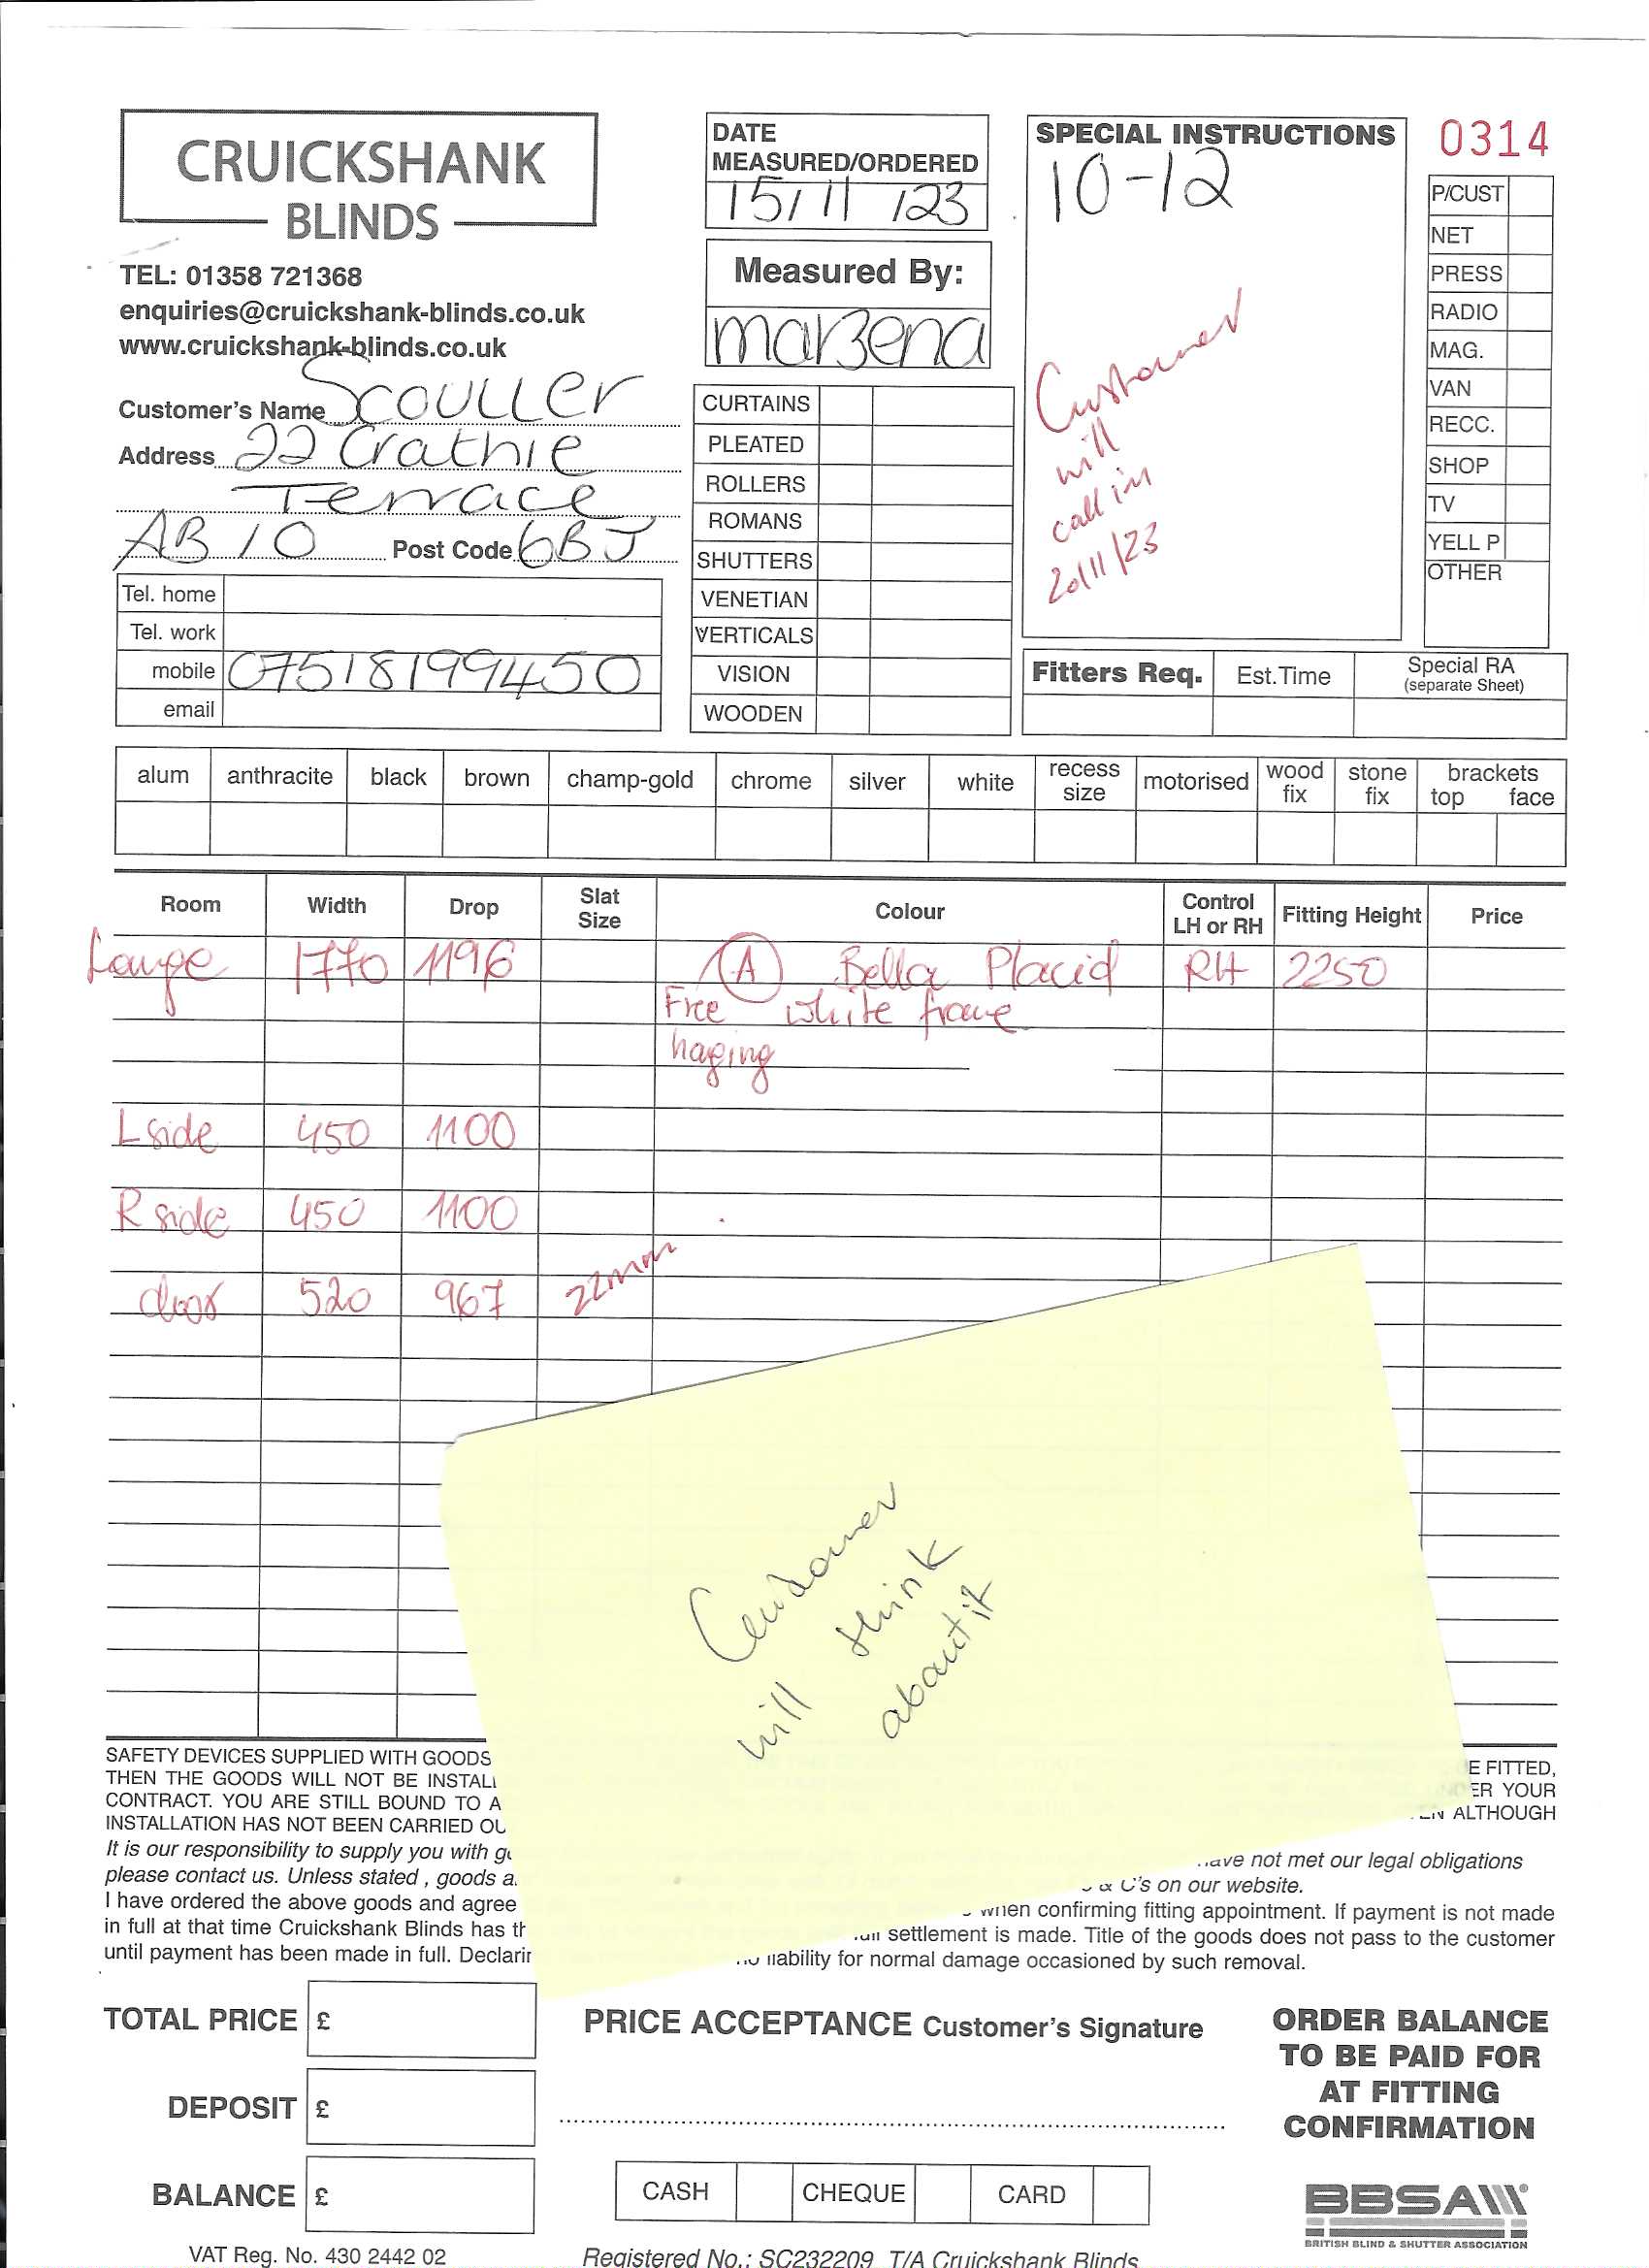 CRUICKSHANK
BLINDS
TEL: 01358 721368
enquiries@cruickshank-blinds.co.uk
www.cruickshank-blinds.co.uk
Customer's Name Scouller
Address 22 Crathie
Terrace
AB10 Post Code 6BJ
Tel. home
Tel. work
mobile 07518199450
email
DATE
MEASURED/ORDERED
15/11/23
Measured By:
marzena
CURTAINS
PLEATED
ROLLERS
ROMANS
SHUTTERS
VENETIAN
VERTICALS
VISION
WOODEN
SPECIAL INSTRUCTIONS
10-12
Customer
will
call in
20/11/23
0314
P/CUST
NET
PRESS
RADIO
MAG.
VAN
RECC.
SHOP
TV
YELL P
OTHER
Fitters Req. Est.Time Special RA
(separate Sheet)
alum anthracite black brown champ-gold chrome silver white recess size motorised wood fix stone fix brackets top face
Room Width Drop Slat Size Colour Control LH or RH Fitting Height Price
Lounge 1770 1196 A Bella Placid RH 2250
Free white frame
haging
L side 450 1100
R side 450 1100
door 520 967 22mm
Customer
will think
about it
SAFETY DEVICES SUPPLIED WITH GOODS E FITTED,
THEN THE GOODS WILL NOT BE INSTAL ER YOUR
CONTRACT. YOU ARE STILL BOUND TO A ALTHOUGH
INSTALLATION HAS NOT BEEN CARRIED OU
It is our responsibility to supply you with g have not met our legal obligations
please contact us. Unless stated , goods a & C's on our website.
I have ordered the above goods and agree when confirming fitting appointment. If payment is not made
in full at that time Cruickshank Blinds has th settlement is made. Title of the goods does not pass to the customer
until payment has been made in full. Declarin liability for normal damage occasioned by such removal.
TOTAL PRICE £
DEPOSIT £
BALANCE £
PRICE ACCEPTANCE Customer's Signature
CASH CHEQUE CARD
ORDER BALANCE
TO BE PAID FOR
AT FITTING
CONFIRMATION
BBSA
BRITISH BLIND & SHUTTER ASSOCIATION
VAT Reg. No. 430 2442 02 Registered No.: SC232209 T/A Cruickshank Blinds